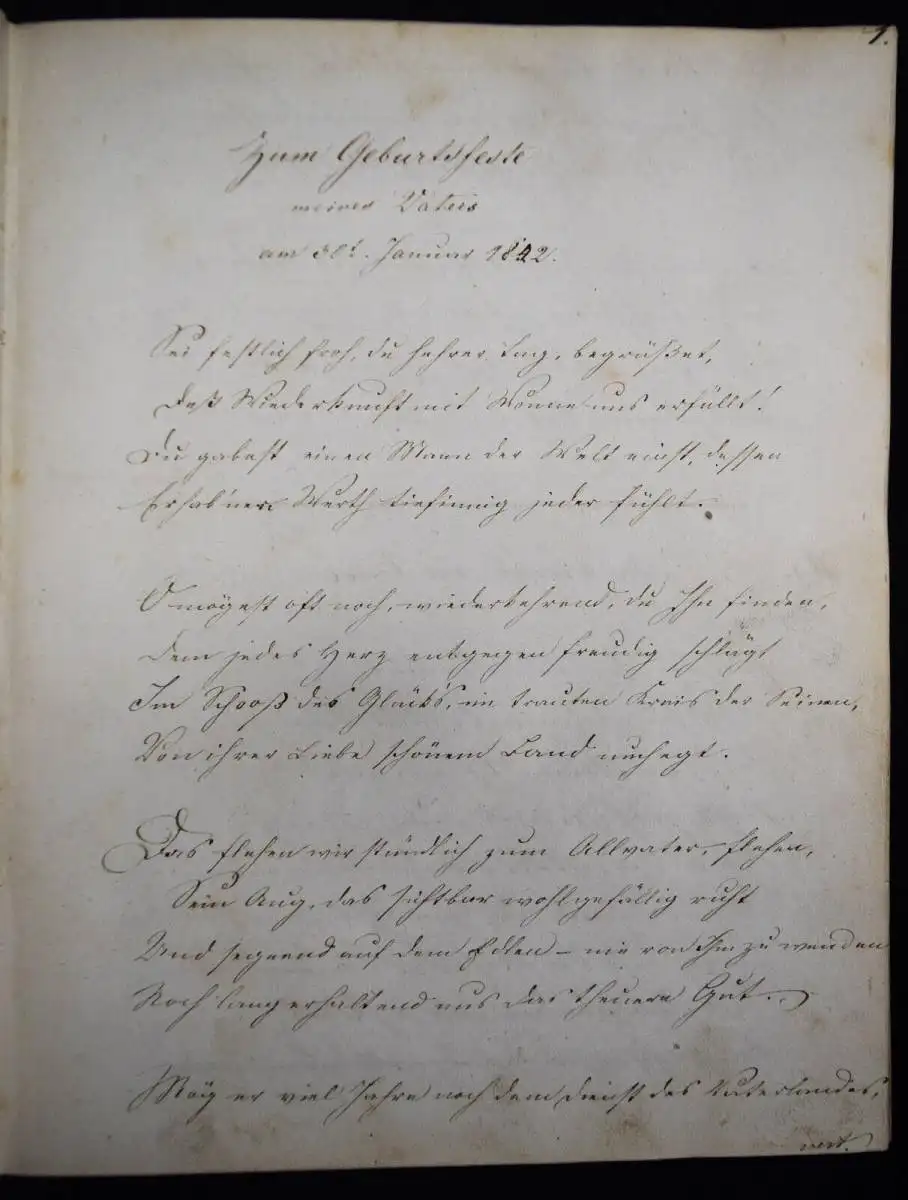 1.
Zum Geburtsfeste
meines Vaters
am 30t. Januar 1842.
Sei festlich froh, du hehrer Tag, begrüßet,
Deß Wiederkunft mit Wonne uns erfüllt!
Du gabest einen Mann der Welt einst, dessen
Erhab'nen Werth tiefinnig jeder fühlt.
O mögest oft noch, wiederkehrend, du Ihn finden,
Dem jedes Herz entgegen freudig schlägt
Im Schooß des Glücks, im trauten Kreis der Seinen,
Von ihrer Liebe schönem Band umhegt.
Das flehen wir stündlich zum Allvater, flehen,
Sein Aug, das sichtbar wohlgefällig ruht
Und segnend auf dem Edlen – nie von Ihm zu wenden
Noch lang erhaltend uns das theuere Gut.
Mög er viel Jahre noch dem Dienst des Vaterlandes,
vert.